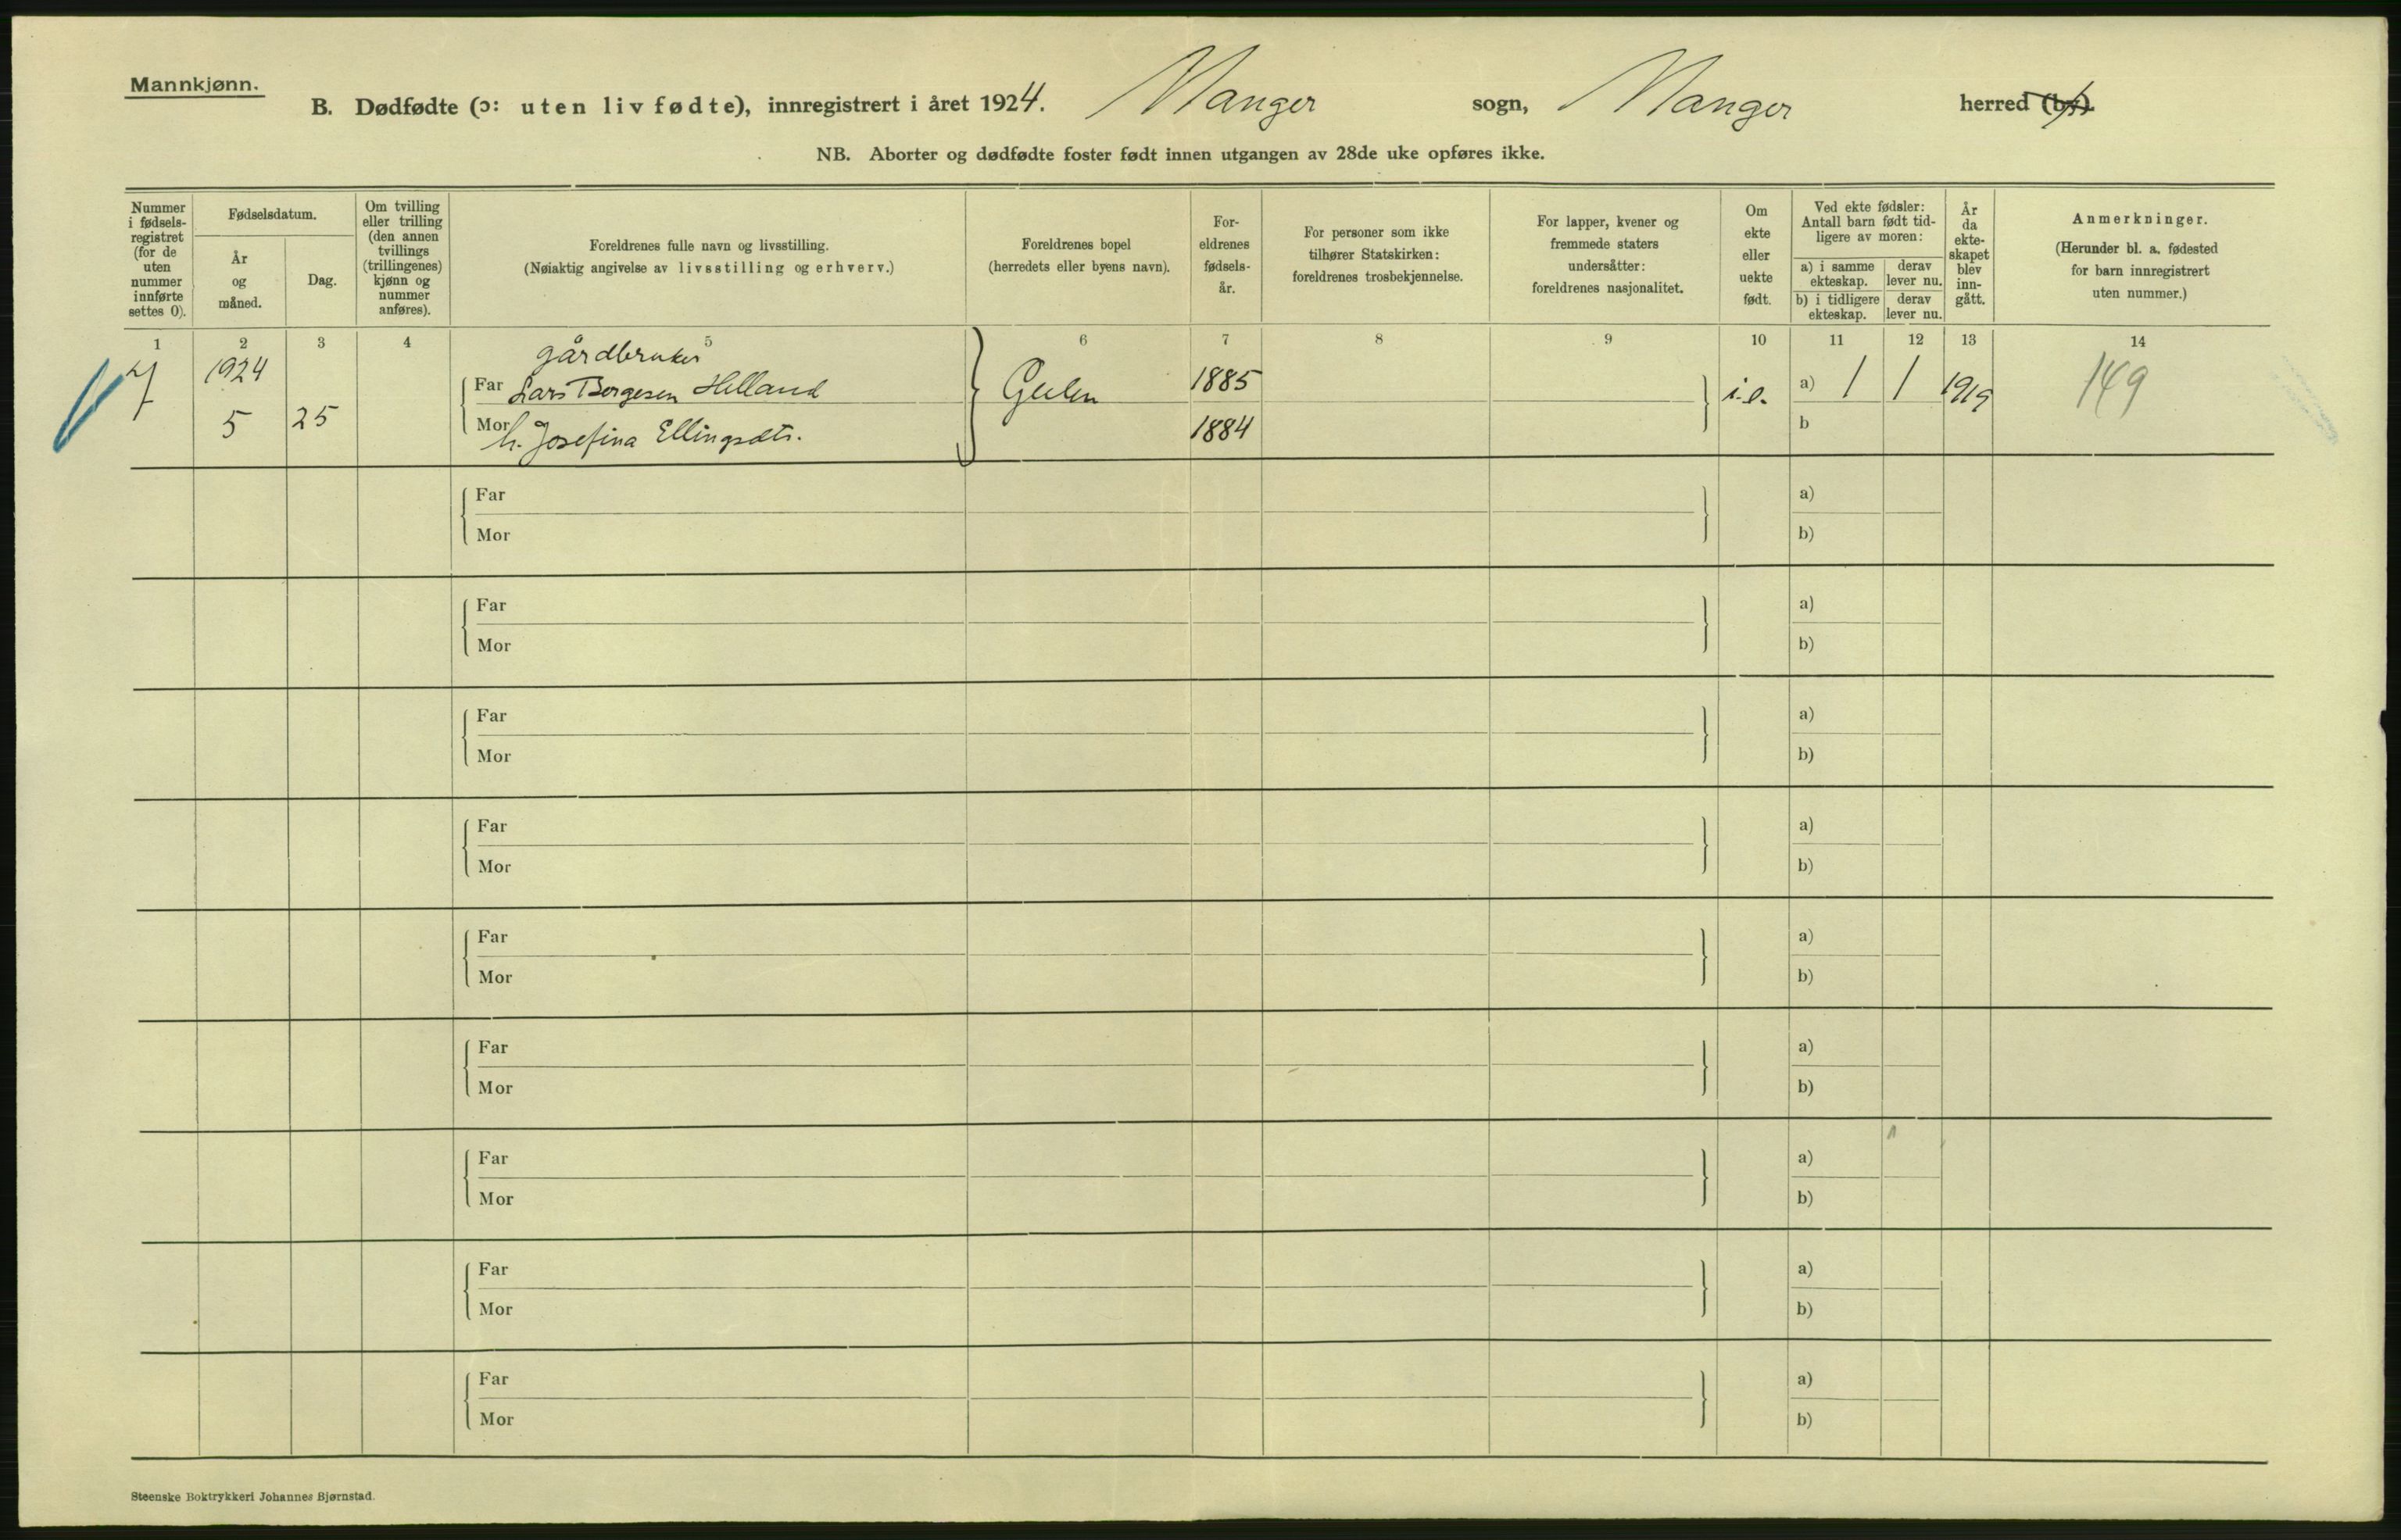 Mannkjønn.
B. Dødfødte (ɔ: uten liv fødte), innregistrert i året 1924. Manger sogn, Manger herred (by).
NB. Aborter og dødfødte foster født innen utgangen av 28de uke opføres ikke.
Nummer i fødsels-registret (for de uten nummer innførte settes 0).
Fødselsdatum.
År og måned.
Dag.
Om tvilling eller trilling (den annen tvillings (trillingenes) kjønn og nummer anføres).
Foreldrenes fulle navn og livsstilling.
(Nøiaktig angivelse av livsstilling og erhverv.)
Foreldrenes bopel
(herredets eller byens navn).
For-eldrenes fødsels-år.
For personer som ikke tilhører Statskirken: foreldrenes trosbekjennelse.
For lapper, kvener og fremmede staters undersåtter: foreldrenes nasjonalitet.
Om ekte eller uekte født.
Ved ekte fødsler: Antall barn født tid-ligere av moren:
a) i samme ekteskap.
derav lever nu.
b) i tidligere ekteskap.
derav lever nu.
År da ekte-skapet blev inn-gått.
Anmerkninger.
(Herunder bl. a. fødested for barn innregistrert uten nummer.)
1 2 3 4 5 6 7 8 9 10 11 12 13 14
7 1924 gårdbruker
Far Lars Børgesen Helland Gulen 1885 i.e. a) 1 1 1919 149
5 25 Mor h. Josefina Ellingsdtr. 1884 b
Far a)
Mor b)
Far a)
Mor b)
Far a)
Mor b)
Far a)
Mor b)
Far a)
Mor b)
Far a)
Mor b)
Far a)
Mor b)
Far a)
Mor b)
Far a)
Mor b)
Steenske Boktrykkeri Johannes Bjørnstad.